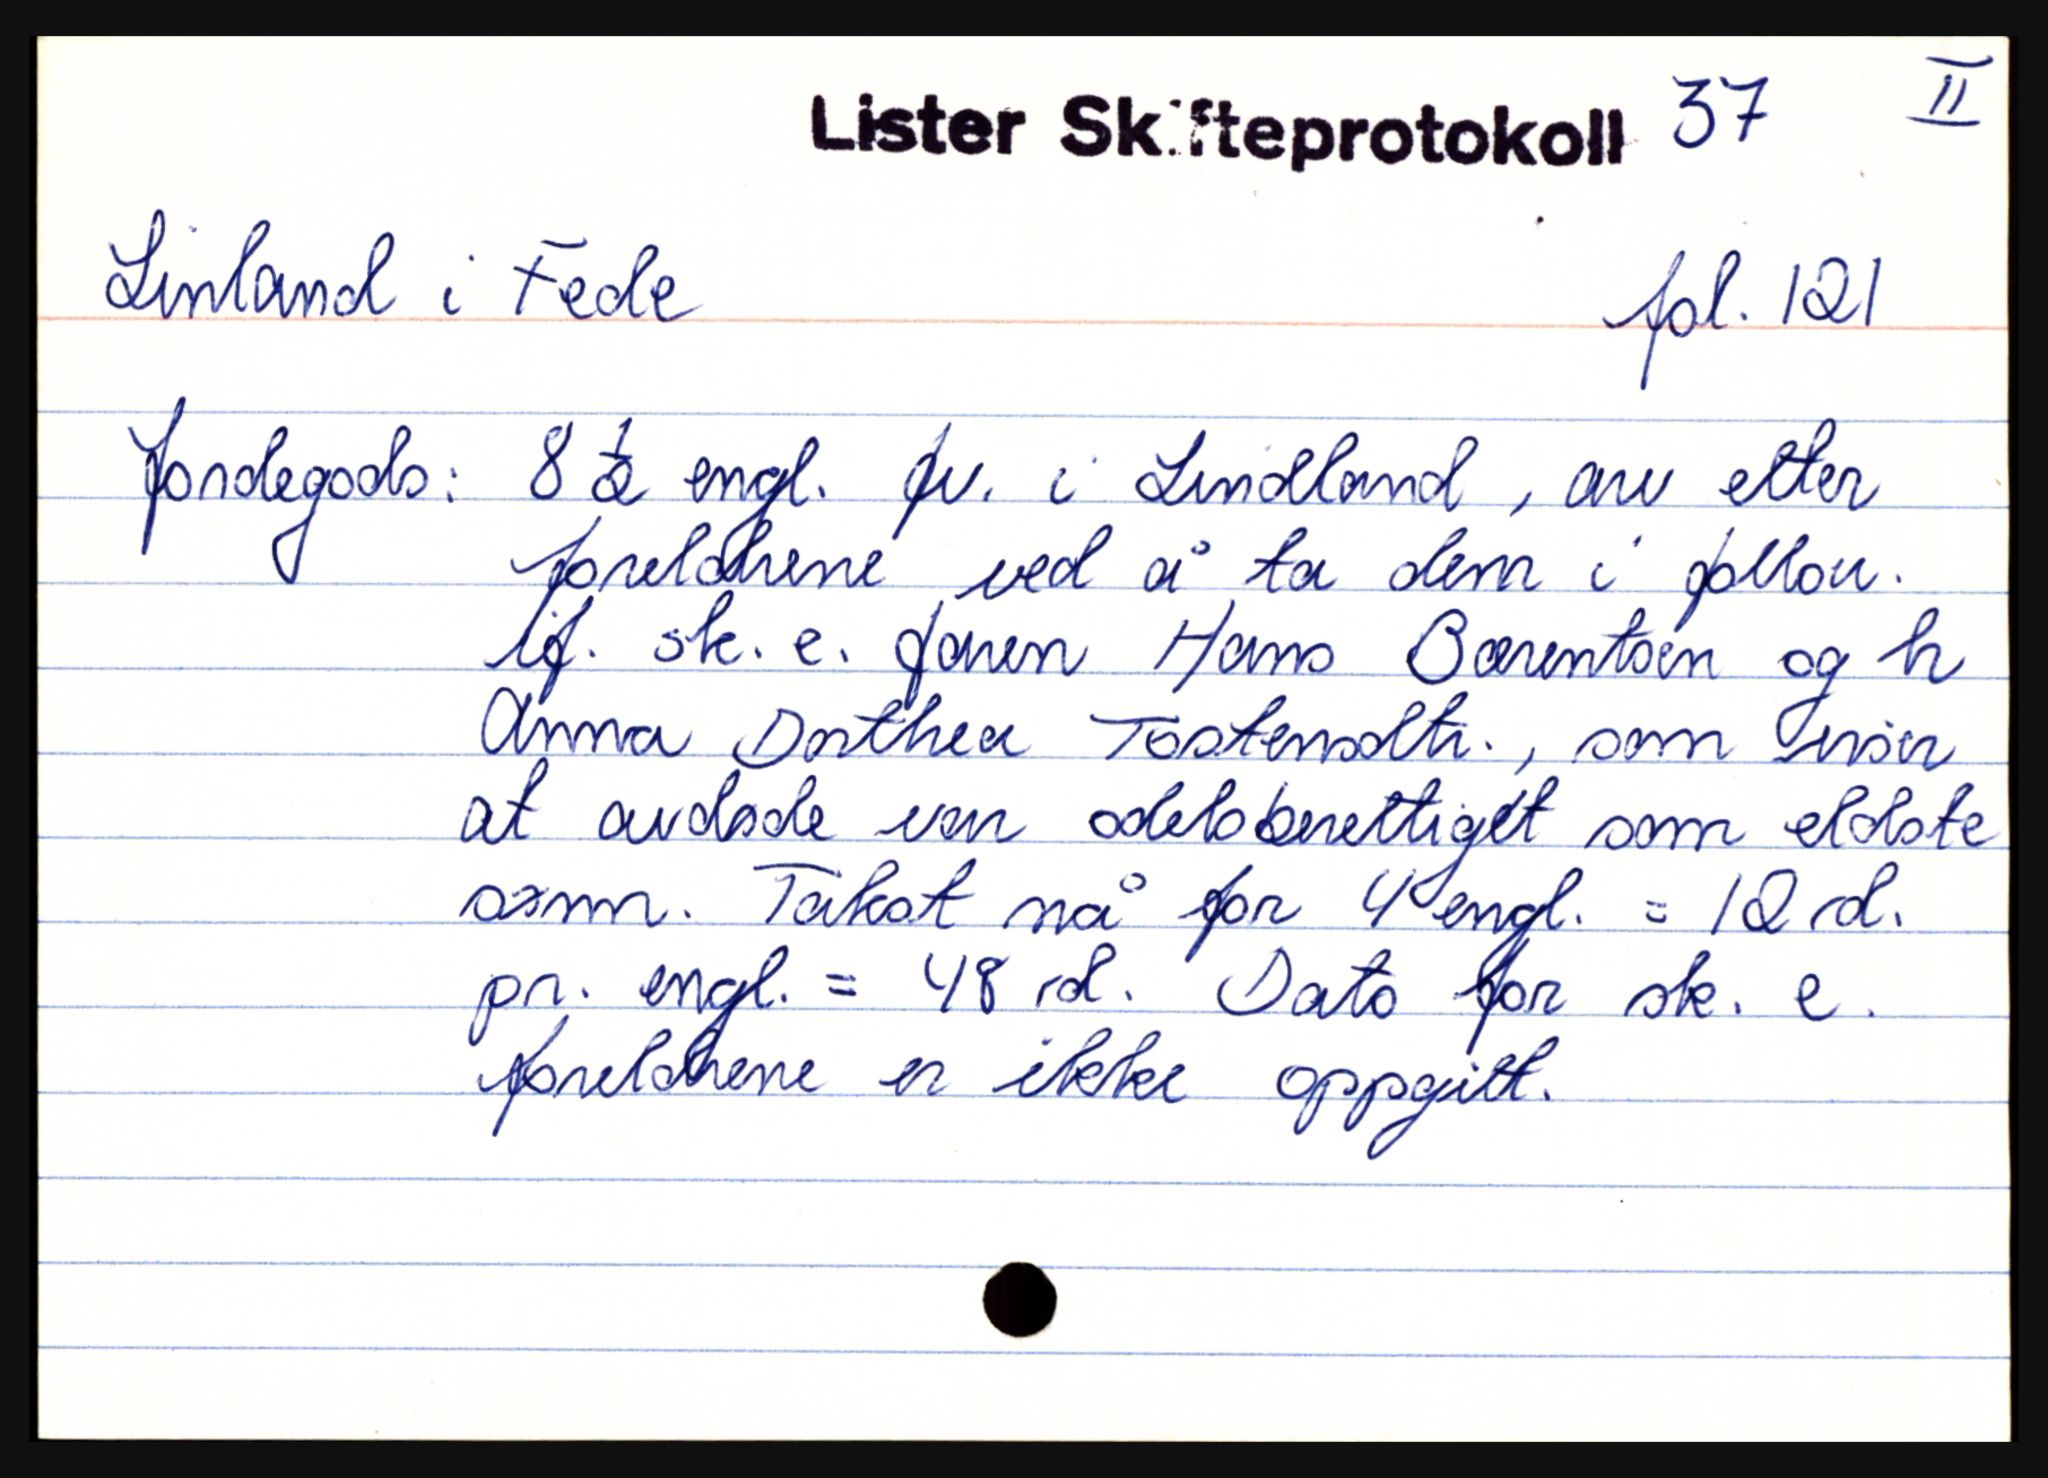 Lister Skifteprotokoll 37 II
Linland i Fede fol. 121
Jordegods: 8 1/2 engl. fv. i Lindland, arv etter
foreldrene ved å ta dem i follou.
lif. sk. e. faren Hans Barentsen og h
Anna Dorthea Tostensdtr., som viser
at avdøde var odelsberettiget som eldste
sønn. Takst nå for 4 engl. = 12 rd.
pr. engl. = 48 rd. Dato for sk. e.
foreldrene er ikke oppgitt.